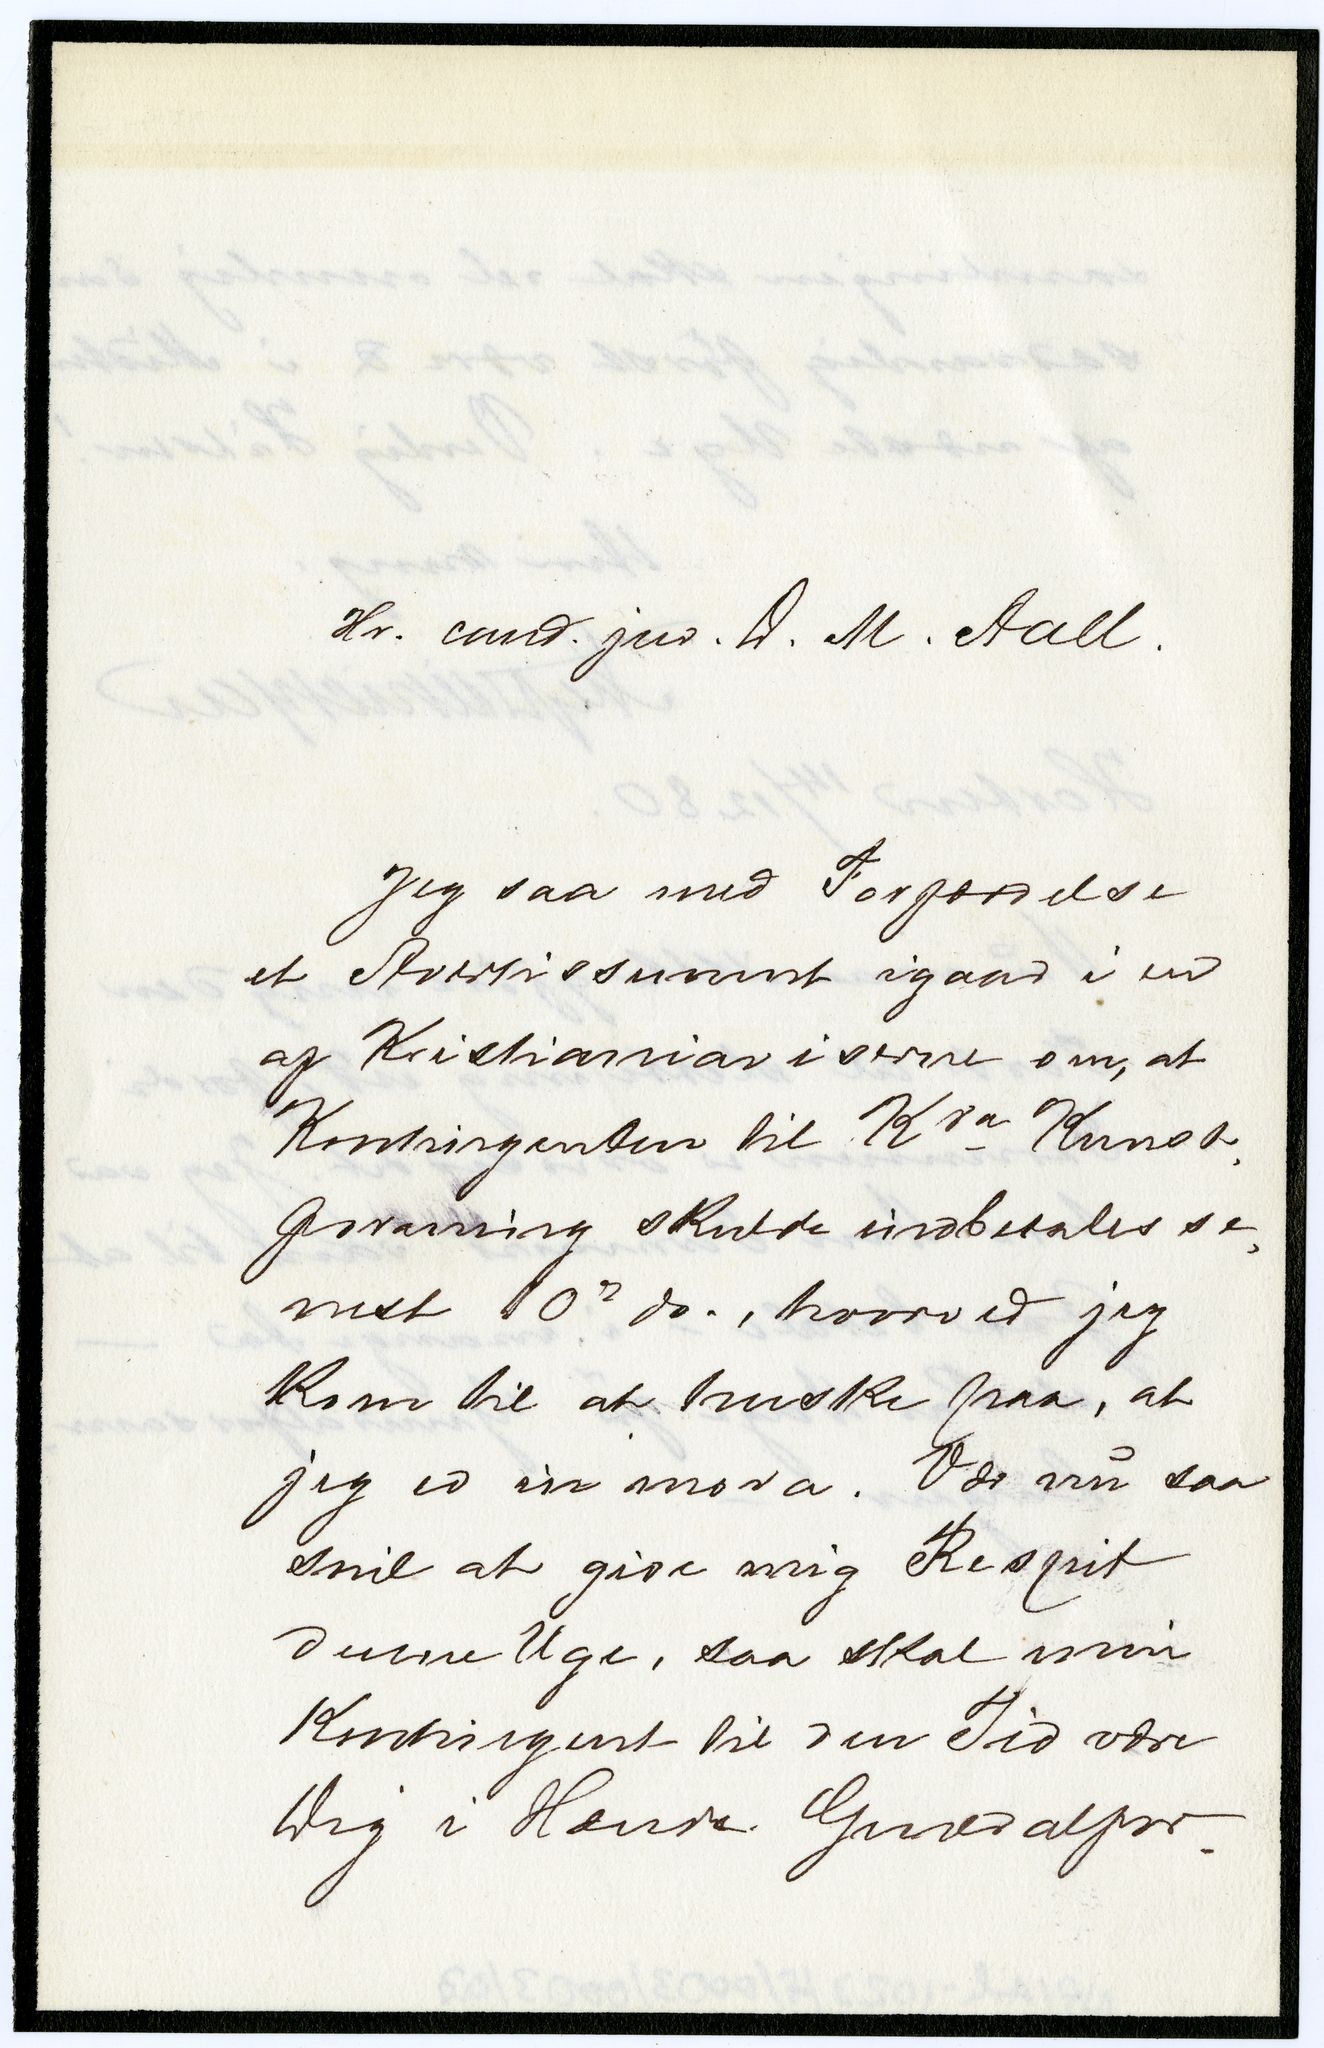 Hr. cand. jur. D. M. Aall.
Jeg saa med Forfærdelse
et Avertissement igaar i en
af Kristianiaviserne om, at
Kontingenten til Kra Kunst-
forening skulde indbetales se-
nest 10de ds., hvorved jeg
kom til at huske paa, at
jeg er in mora. Vær nu saa
snil at give mig Respit
denne Uge, saa skal min
Kontingent til den Tid være
Dig i Hænde. Generalfor-